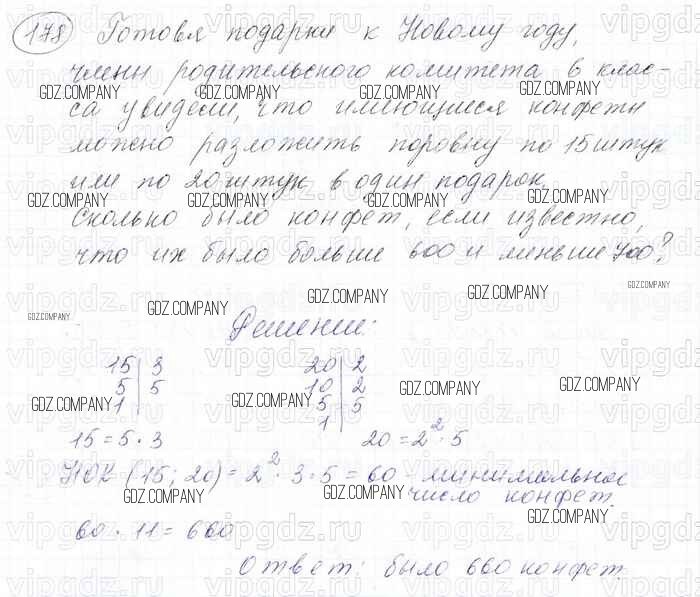 178 Готовя подарки к Новому году,
члены родительского комитета в клас-
са увидели, что имеющиеся конфеты
можно разложить поровну по 15 штук
или по 20 штук в один подарок.
Сколько было конфет, если известно,
что их было больше 600 и меньше 700?
Решение:
15 | 3 20 | 2
5 | 5 10 | 2
1 | 5 | 5
1
15 = 5 · 3 20 = 2² · 5
НОК (15; 20) = 2² · 3 · 5 = 60 минимальное
число конфет.
60 · 11 = 660
Ответ: было 660 конфет.
vipgdz.ru
GDZ.COMPANY